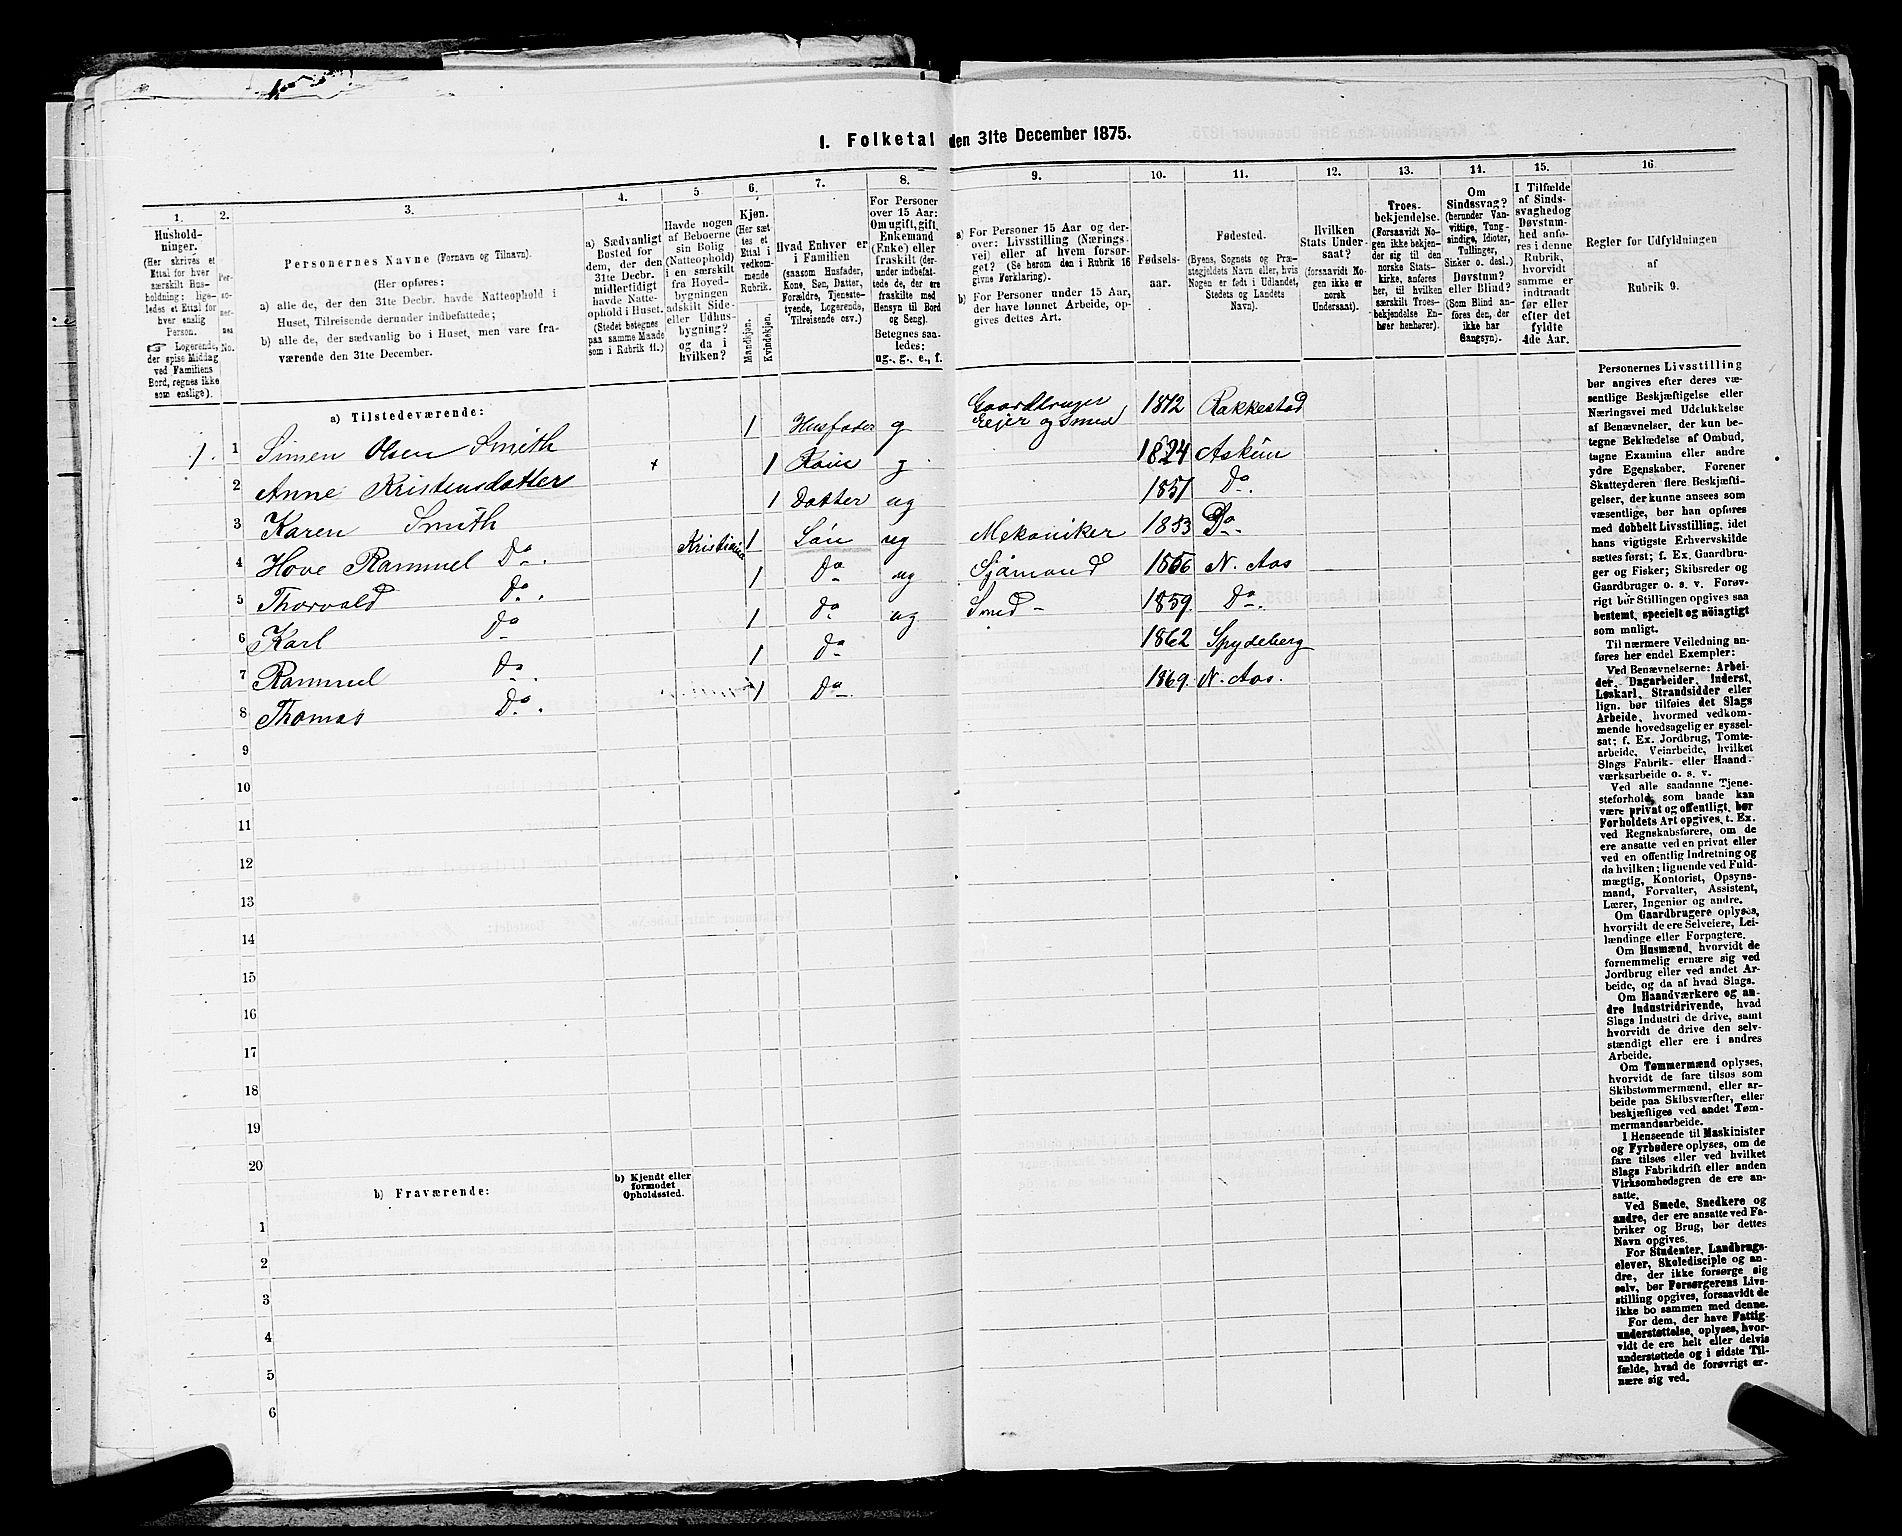 1. Folketal den 31te December 1875.
1. 2. 3. 4. 5. 6. 7. 8. 9. 10. 11. 12. 13. 14. 15. 16
Hushold-
ninger.
(Her skrives et
Ettal for hver
særskilt Hus-
holdning; lige-
ledes et Ettal for
hver enslig
Person.
☞ Logerende,
der spise Middag
ved Familiens
Bord, regnes ikke
som enslige).
Per-
so-
ner-
nes
No.
Personernes Navne (Fornavn og Tilnavn).
(Her opføres:
a) alle de, der den 31te Decbr. havde Natteophold i
Huset, Tilreisende derunder indbefattede;
b) alle de, der sædvanlig bo i Huset, men vare fra-
værende den 31te December.
a) Sædvanligt
Bosted for
dem, der den
31te Decbr.
midlertidigt
havde Natte-
ophold i Huset.
(Stedet betegnes
paa samme Maade
som i Rubrik 11.)
Havde nogen
af Beboerne
sin Bolig
(Natteophold)
i en særskilt
fra Hoved-
bygningen
adskilt Side-
eller Udhus-
bygning?
og da i
hvilken?
Kjøn.
(Her sæt-
tes et
Ettal i
vedkom-
mende
Rubrik.
Mandkjøn.
Kvindekjøn.
Hvad Enhver er
i Familien
(saasom Husfader,
Kone, Søn, Datter,
Forældre, Tjeneste-
tyende, Logerende,
Tilreisende osv.)
For Personer
over 15 Aar:
Om ugift, gift,
Enkemand
(Enke) eller
fraskilt (der-
under indbefat-
tede de, der ere
fraskilte med
Hensyn til Bord
og Seng).
Betegnes saa-
ledes:
ug., g., e., f.
a) For Personer 15 Aar og der-
over: Livsstilling (Nærings-
vei) eller af hvem forsør-
get? (Se herom den i Rubrik 16
givne Forklaring).
b) For Personer under 15 Aar,
der have lønnet Arbeide, op-
gives dettes Art.
Fødsels-
aar.
Fødested.
(Byens, Sognets og Præ-
stegjeldets Navn eller, hvis
Nogen er født i Udlandet,
Stedets og Landets
Navn).
Hvilken
Stats Under-
saat?
(forsaavidt No-
gen ikke er
norsk
Undersaat).
Troes-
bekjendelse.
(Forsaavidt No-
gen ikke bekjen-
der sig til den
norske Stats-
kirke, anføres
her, til hvilken
særskilt Troes-
bekjendelse En-
hver henhører).
Om
Sindssvag?
(herunder Van-
vittige, Tung-
sindige, Idioter,
Tullinger,
Sinker o. desl.)
Døvstum?
eller Blind?
(Som Blind an-
føres den, der
ikke har
Gangsyn).
I Tilfælde
af Sinds-
svaghedog
Døvstum-
hed anfø-
res i denne
Rubrik,
hvorvidt
samme er
indtraadt
før eller
efter det
fyldte
4de Aar.
Regler for Udfyldningen
af
Rubrik 9.
a) Tilstedeværende:
1. 1 Simen Olsen Smith 1 Husfader g Gaardbruger Eejer og Smed 1812 Rakkestad
2 Anne Kristensdatter + 1 Kone g. 1824 Askim
3 Karen Smith 1 Datter ug 1851 Do.
4 Hove Rammel Do. Kristiania 1 Søn ug Mekaniker 1853 Do
5 Thorvald Do. 1 Do ug Sjømand 1856 N. Aas
6 Karl Do 1 Do ug Smed 1859. Do.
7 Rammel Do. 1 Do 1862 Spydeberg
8 Thomas Do. 1 Do 1869. N. Aas.
9
10
11
12
13
14
15
16
17
18
19
20
b) Fraværende:
b) Kjendt eller
formodet
Opholdssted.
1
2
3
4
5
6
Personernes Livsstilling
bør angives efter deres væ-
sentlige Beskjæftigelse eller
Næringsvei med Udelukkelse
af Benævnelser, der kun be-
tegne Beklædelse af Ombud,
tagne Examina eller andre
ydre Egenskaber. Forener
Skatteyderen flere Beskjæfti-
gelser, der kunne ansees som
væsentlige, bør han opføres
med dobbelt Livsstilling, idet
hans vigtigste Erhvervskilde
sættes først; f. Ex. Gaardbru-
ger og Fisker; Skibsreder og
Gaardbruger o. s. v. Forøv-
rigt bør Stillingen opgives saa
bestemt, specielt og nöiagtigt
som muligt.
Til nærmere Veiledning an-
føres her endel Exempler:
Ved Benævnelserne: Arbei-
der, Dagarbeider, Inderst,
Løskarl, Strandsidder eller
lign. bør tilføies det Slags
Arbeide, hvormed vedkom-
mende hovedsagelig er syssel-
sat; f. Ex. Jordbrug, Tomte-
arbeide, Veiarbeide, hvilket
Slags Fabrik- eller Haand-
værksarbeide o. s. v.
Ved alle saadanne Tjene-
steforhold, som baade kan
være privat og offentligt, bør
Forholdets Art opgives, t. Ex.
ved Regnskabsførere, om de
ere ansatte ved en privat eller
ved en offentlig Indretning og
da hvilken; lignende ved Fuld-
mægtig, Kontorist, Opsyns-
mand, Forvalter, Assistent,
Lærer, Ingeniør og andre.
Om Gaardbrugere oplyses,
hvorvidt de ere Selveiere, Lei-
lændinge eller Forpagtere.
Om Husmænd, hvorvidt de
fornemmelig ernære sig ved
Jordbrug eller ved andet Ar-
beide, og da af hvad Slags.
Om Haandværkere og an-
dre Industridrivende, hvad
Slags Industri de drive, samt
hvorvidt de drive den selv-
stændigt eller ere i andres
Arbeide.
Om Tømmermænd oplyses,
hvorvidt de fare tilsøs som
Skibstømmermænd, eller ar-
beide paa Skibsværfter, eller
beskjæftiges ved andet Tøm-
mermandsarbeide.
I Henseende til Maskinister
og Fyrbødere oplyses, om de
fare tilsøs eller ved hvilket
Slags Fabrikdrift eller anden
Virksombedsgren de ere an-
satte.
Ved Smede, Snedkere og
andre, der ere ansatte ved Fa-
briker og Brug, bør dettes
Navn opgives.
For Studenter, Landbrugs-
elever, Skoledisciple og an-
dre, der ikke forsørge sig
selv, bør Forsørgerens Livs-
stilling opgives, forsaavidt de
ikke bo sammen med denne.
For dem, der have Fattig-
understøttelse, oplyses, hvor-
vidt de ere helt eller delvis
understøttede og i sidste Til-
fælde, hvad de forøvrigt er-
nære sig ved.